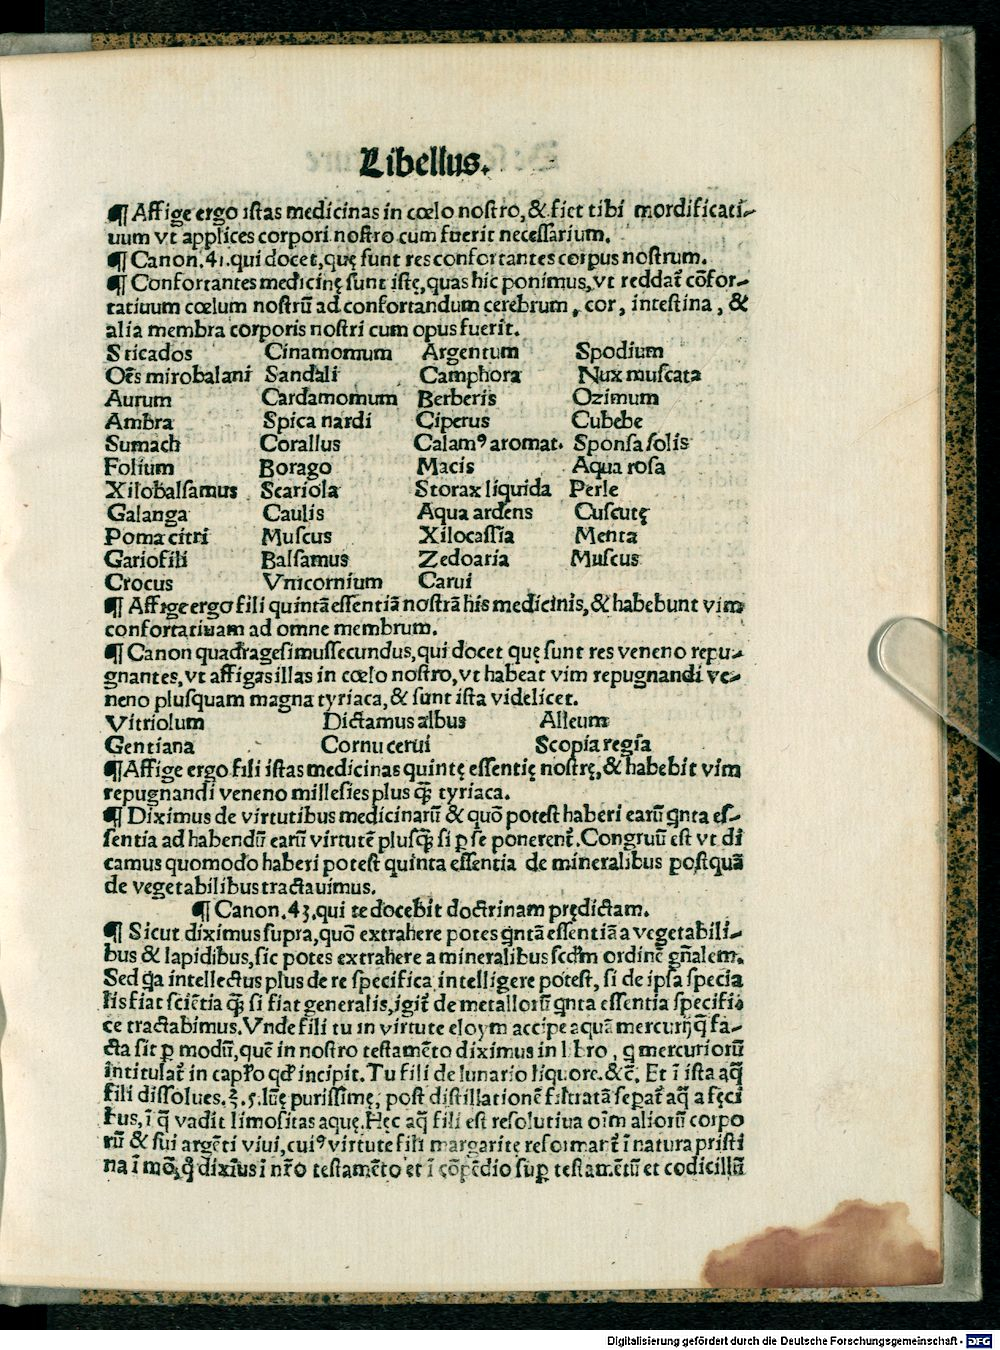 Libellus.
¶ Affige ergo istas medicinas in cœlo nostro, & fiet tibi mordificati-
uum vt applices corpori nostro cum fuerit necessarium.
¶ Canon. 41. qui docet, quę sunt res confortantes corpus nostrum.
¶ Confortantes medicinę sunt istę, quas hic ponimus, vt reddat̃ cõfor-
tatiuum cœlum nostrũ ad confortandum cerebrum, cor, intestina, &
alia membra corporis nostri cum opus fuerit.
Sticados Cinamomum Argentum Spodium
Oẽs mirobalani Sandali Camphora Nux muscata
Aurum Cardamomum Berberis Ozimum
Ambra Spica nardi Ciperus Cubebe
Sumach Corallus Calamꝰ aromat. Sponsa solis
Folium Borago Macis Aqua rosa
Xilobalsamus Scariola Storax liquida Perle
Galanga Caulis Aqua ardens Cuscutę
Poma citri Muscus Xilocassia Menta
Gariofili Balsamus Zedoaria Muscus
Crocus Vnicornium Carui
¶ Affige ergo fili quintã essentiã nostrã his medicinis, & habebunt vim
confortatiuam ad omne membrum.
¶ Canon quadragesimussecundus, qui docet quę sunt res veneno repu-
gnantes, vt affigas illas in cœlo nostro, vt habeat vim repugnandi ve-
neno plusquam magna tyriaca, & sunt ista videlicet.
Vitriolum Dictamus albus Alleum
Gentiana Cornu cerui Scopia regia
¶ Affige ergo fili istas medicinas quintę essentię nostrę, & habebit vim
repugnandi veneno millesies plus q̃ tyriaca.
¶ Diximus de virtutibus medicinarũ & quõ potest haberi earũ qnta es-
sentia ad habendũ earũ virtutẽ plusq̃ si p se ponerent̃. Congruũ est vt di
camus quomodo haberi potest quinta essentia de mineralibus postquã
de vegetabilibus tractauimus.
¶ Canon. 43. qui te docebit doctrinam prędictam.
¶ Sicut diximus supra, quõ extrahere potes qntã essentiã a vegetabili-
bus & lapidibus, sic potes extrahere a mineralibus scdm ordinẽ gñalem.
Sed qa intellectus plus de re specifica intelligere potest, si de ipsa specia
lis fiat sciẽtia q̃ si fiat generalis, igit̃ de metallorũ qnta essentia specifi
ce tractabimus. Vnde fili tu in virtute eloym accipe aquã mercurij q̃ fa-
cta sit ꝑ modũ, quẽ in nostro testamẽto diximus in libro, q mercuriorũ
intitulat̃ in capło qđ incipit. Tu fili de lunario liquore. &c̃. Et ĩ ista aq̃
fili dissolues. ℥. 5. lũę purissimę, post distillationẽ filtratã sepat̃ aq̃ a fęci
bus, ĩ q̃ vadit limositas aquę. Hęc aq̃ fili est resolutiua oĩm aliorũ corpo
rũ & sui argẽti viui, cuiꝰ virtute fili margarite reformant̃ ĩ natura pristi
na ĩ mõ, q̃ dixiꝰ ĩ nr̃o testamẽto et ĩ cõpẽdio sup testamẽtũ et codicillũ
Digitalisierung gefördert durch die Deutsche Forschungsgemeinschaft - DFG